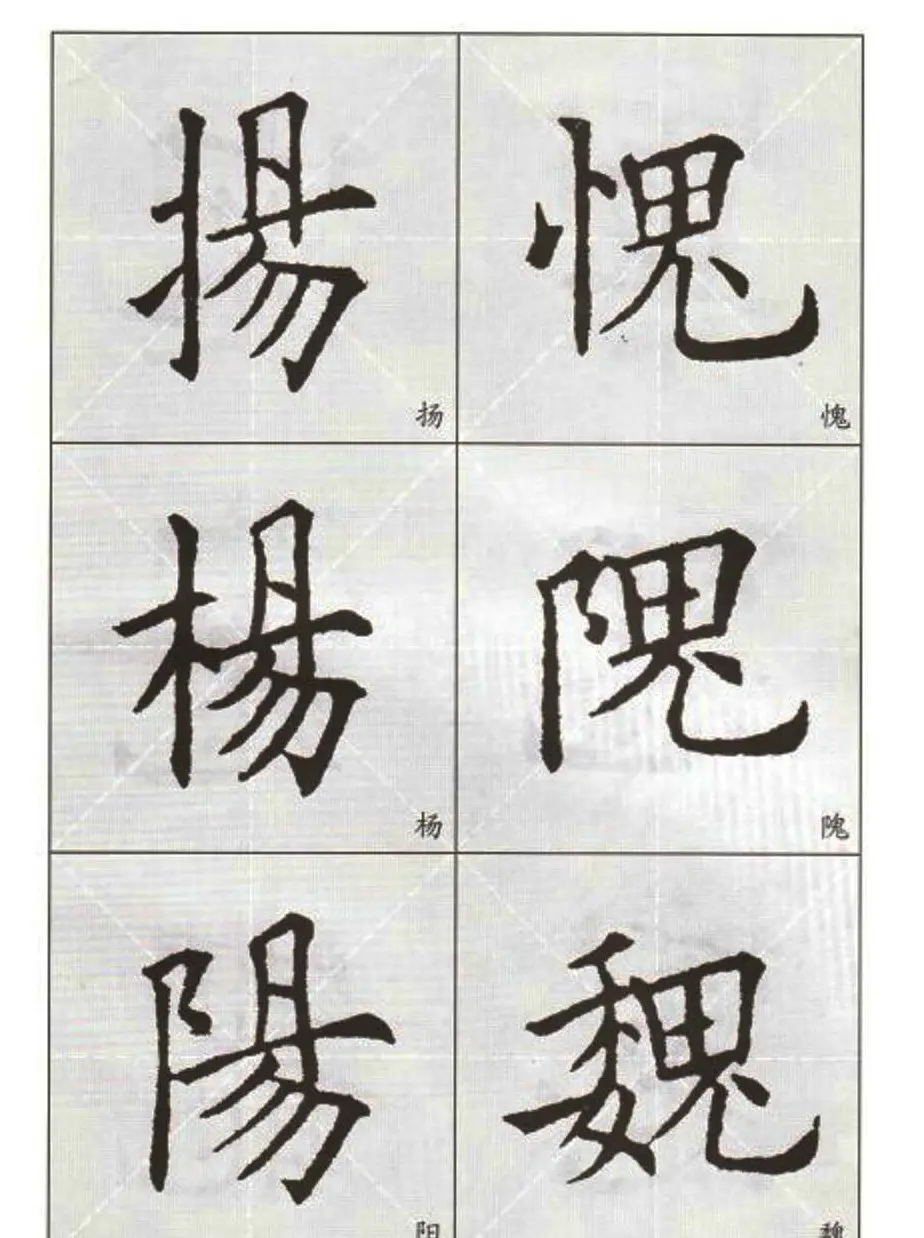 揚 愧
扬 愧
楊 隗
杨 隗
陽 魏
阳 魏